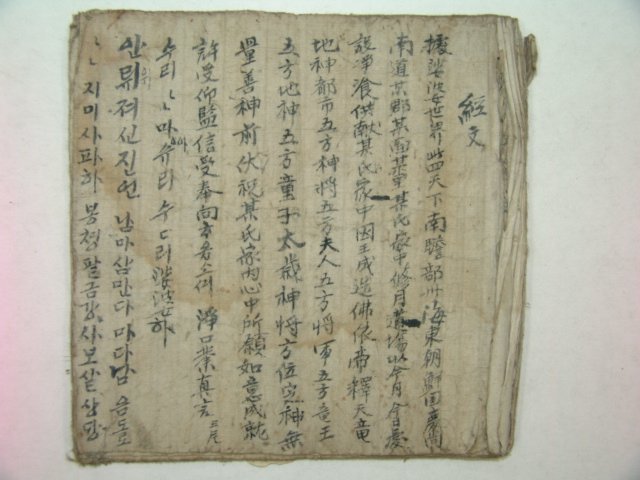 經文
據娑婆世界此四天下南贍部州海東朝鮮國慶尚
南道某郡某面某里某氏家中修月道場以今月今日慶
設淨飡供献某氏家中因王成造佛依帝釋天竜
地神都市五方神將五方夫人五方將軍五方竜王
五方地神五方童子太歲神將方位 神無
量善神前伏祝某氏家内心中所願如意成就
許受仰監信受奉向 淨口業真言 三尺
수리ヽ마하슈리수ㄷ리娑婆하
안뤼져신진언 남마삼만다 마다남 음돌
ヽヽ지미사파하 봉쳥팔금강사보살 상당